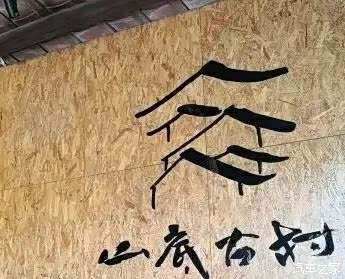 山底古村
汽车之家